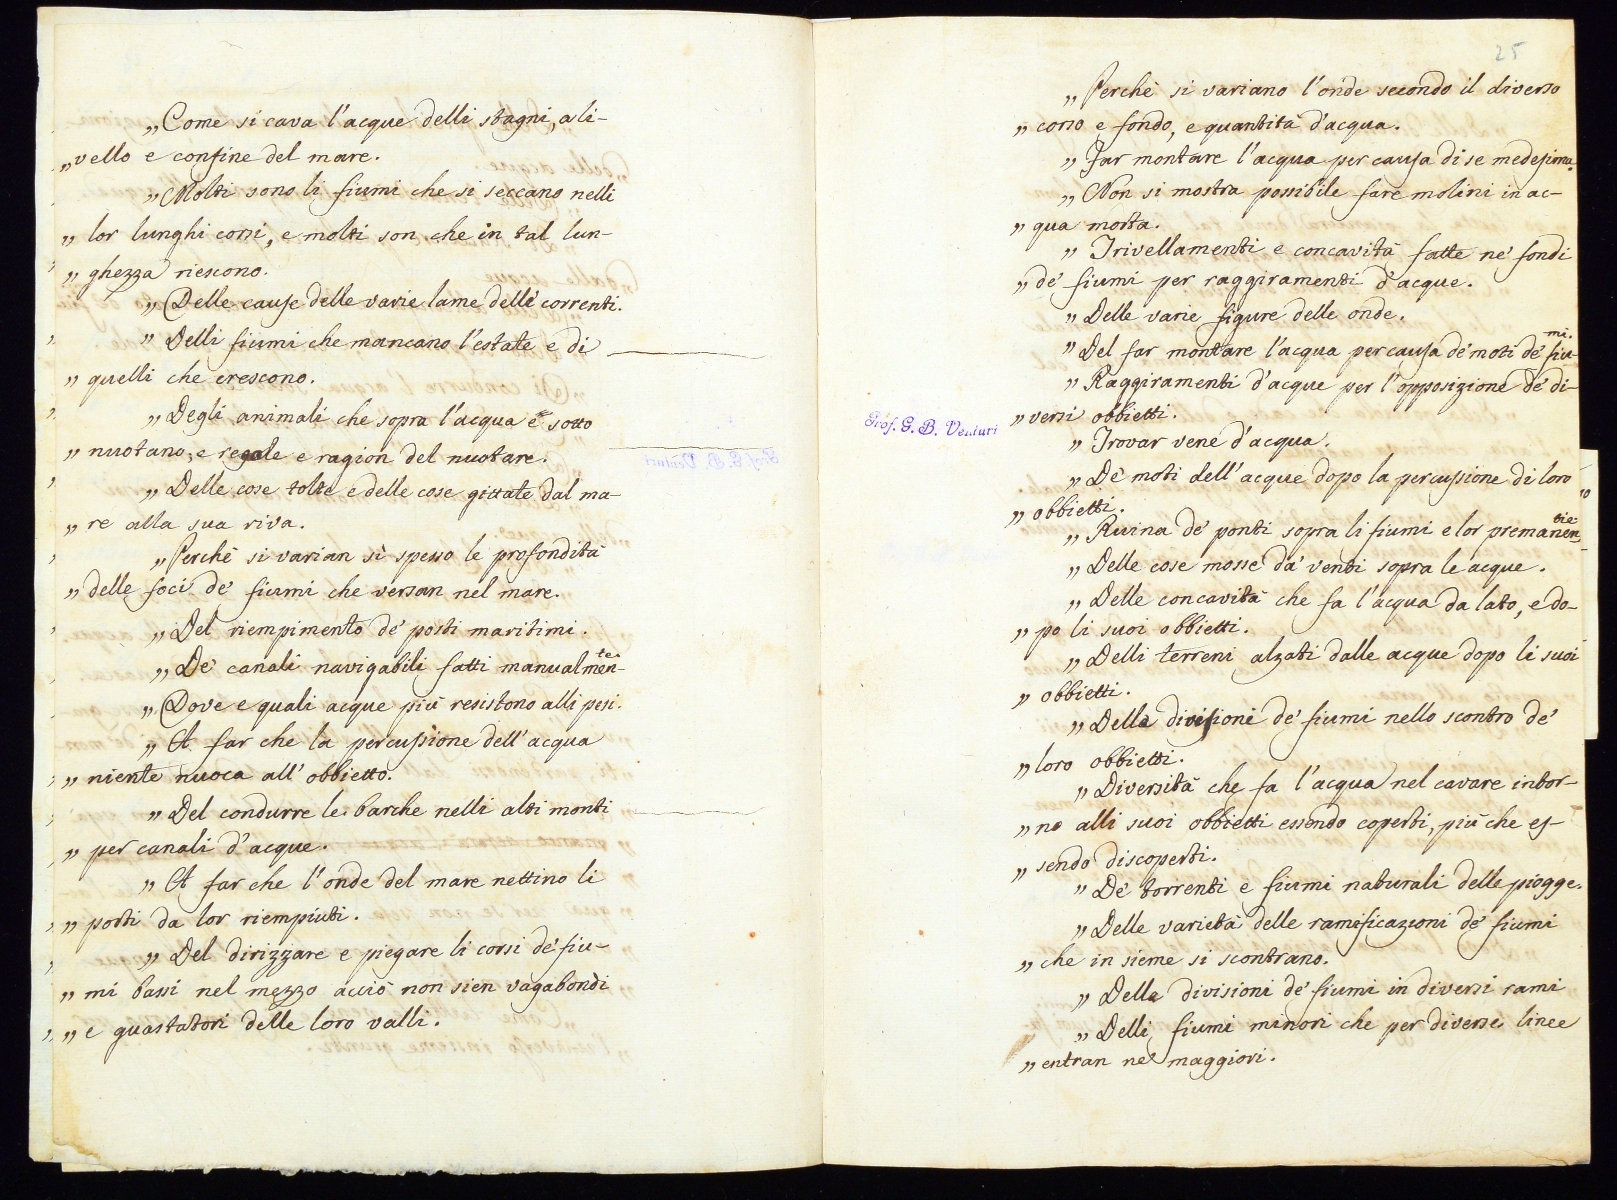 „ Come si cava l'acque delli stagni, a li-
„ vello e confine del mare.
„ Molti sono li fiumi che si seccano nelli
„ lor lunghi corsi, e molti son che in tal lun-
„ ghezza riescono.
„ Delle cause delle varie lame delle correnti.
„ Delli fiumi che mancano l'estate e di
„ quelli che crescono.
„ Degli animali che sopra l'acqua e sotto
„ nuotano, e regole e ragion del nuotare.
„ Delle cose tolte e delle cose gittate dal ma-
„ re alla sua riva.
„ Perchè si varian sì spesso le profondità
„ delle foci de' fiumi che versan nel mare.
„ Del riempimento de' porti maritimi.
„ De' canali navigabili fatti manualmen-te.
„ Dove e quali acque più resistono alli pesi.
„ A far che la percussione dell'acqua
„ niente nuoca all'obbietto.
„ Del condurre le barche nelli alti monti
„ per canali d'acque.
„ A far che l'onde del mare nettino li
„ porti da lor riempiuti.
„ Del dirizzare e piegare li corsi de' fiu-
„ mi bassi nel mezzo acciò non sien vagabondi
„ e guastatori delle loro valli.
25
„ Perchè si variano l'onde secondo il diverso
„ corso e fondo, e quantità d'acqua.
„ Far montare l'acqua per causa di se medesima.
„ Non si mostra possibile fare molini in ac-
„ qua morta.
„ Trivellamenti e concavità fatte ne' fondi
„ de' fiumi per raggiramenti d'acque.
„ Delle varie figure delle onde.
„ Del far montare l'acqua per causa de' moti de' fiu-mi.
„ Raggiramenti d'acque per l'opposizione de' di-
„ versi obbietti.
Prof. G. B. Venturi
„ Trovar vene d'acqua.
„ De' moti dell'acque dopo la percussione di loro
„ obbietti.
„ Ruina de' ponti sopra li fiumi e lor premanen-tie
„ Delle cose mosse da' venti sopra le acque.
„ Delle concavità che fa l'acqua da lato, e do-
„ po li suoi obbietti.
„ Delli terreni alzati dalle acque dopo li suoi
„ obbietti.
„ Della divisioni de' fiumi nello scontro de'
„ loro obbietti.
„ Diversità che fa l'acqua nel cavare intor-
„ no alli suoi obbietti essendo coperti, più che es-
„ sendo discoperti.
„ De' torrenti e fiumi naturali delle piogge.
„ Delle varietà delle ramificazioni de' fiumi
„ che in sieme si scontrano.
„ Della divisioni de' fiumi in diversi rami
„ Delli fiumi minori che per diverse linee
„ entran ne' maggiori.